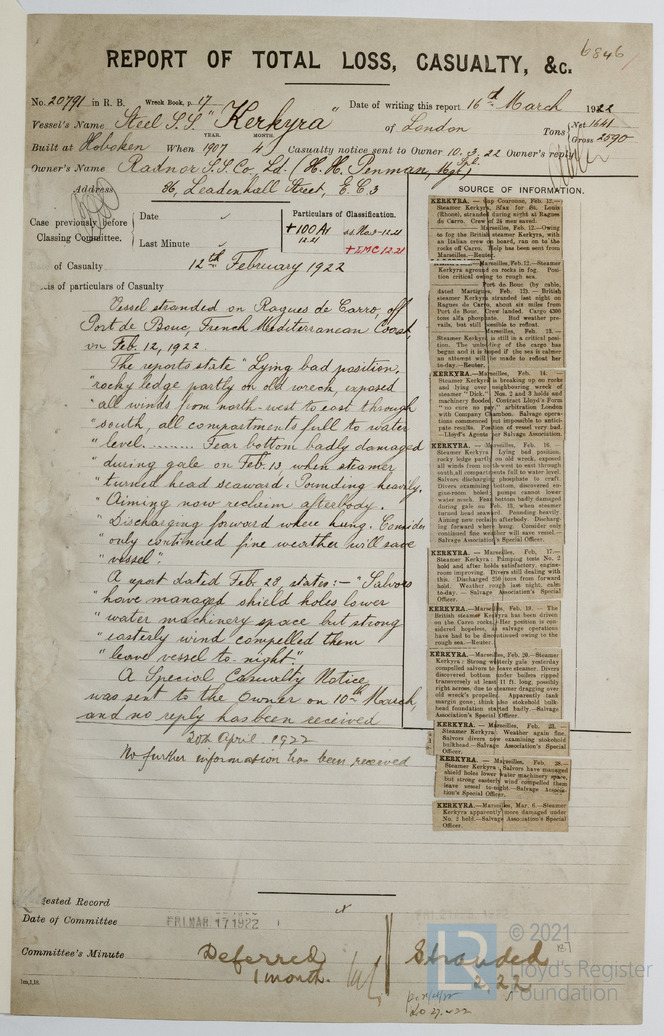 6846
REPORT OF TOTAL LOSS, CASUALTY, &c.
No. 20791 in R. B. Wreck Book, p. 17 Date of writing this report 16th March 1922
Vessel's Name Steel S.S. "Kerkyra" of London Tons Net 1641
Gross 2590
YEAR. MONTH.
Built at Hoboken When 1907 4 Casualty notice sent to Owner 10. 3. 22 Owner's reply
Owner's Name Radnor S.S. Co., Ld. (H. H. Penman, Mgr)
Address 36, Leadenhall Street, E.C.3
SOURCE OF INFORMATION.
Case previously before
Classing Committee.
Date
Last Minute
Particulars of Classification.
+100A1
12.21
+LMC 12.21
of Casualty 12th February 1922
is of particulars of Casualty
Vessel stranded on Ragues de Carro, off
Port de Bouc, French Mediterranean Coast,
on Feb. 12, 1922.
The reports state "Lying bad position,
"rocky ledge partly on old wreck, exposed
"all winds from north-west to east through
"south, all compartments full to water
"level.......... Fear bottom badly damaged
"during gale on Feb. 13 when steamer
"turned head seaward. Pounding heavily.
"Aiming now reclaim afterbody.
"Discharging forward where hung. Consider
"only continued fine weather will save
"vessel".
A report dated Feb. 28, states:— "Salvors
"have managed shield holes lower
"water machinery space but strong
"easterly wind compelled them
"leave vessel to-night."
A Special Casualty Notice
was sent to the Owner on 10th March,
and no reply has been received
20th April 1922
No further information has been received
KERKYRA.—Cap Couronne, Feb. 12.—
Steamer Kerkyra, Sfax for St. Louis
(Rhone), stranded during night at Ragues
de Carro. Crew of 24 men saved.
Marseilles, Feb. 12.—Owing
to fog the British steamer Kerkyra, with
an Italian crew on board, ran on to the
rocks off Carro. Help has been sent from
Marseilles.—Reuter.
Marseilles, Feb. 12.—Steamer
Kerkyra aground on rocks in fog. Position
critical owing to rough sea.
Port de Bouc (by cable,
dated Martigues, Feb. 12).—British
steamer Kerkyra stranded last night on
Ragues de Carro, about six miles from
Port de Bouc. Crew landed. Cargo 4300
tons alfa phosphate. Bad weather prevails,
but still possible to refloat.
Marseilles, Feb. 13.—
Steamer Kerkyra is still in a critical position.
The unloading of the cargo has
begun and it is hoped if the sea is calmer
an attempt will be made to refloat her
to-day.—Reuter.
KERKYRA.—Marseilles, Feb. 14.—
Steamer Kerkyra is breaking up on rocks
and lying over neighbouring wreck of
steamer "Dick." Nos. 2 and 3 holds and
machinery flooded. Contract Lloyd's Form
"no cure no pay," arbitration London
with Company Chambon. Salvage operations
commenced but impossible to anticipate
results. Position of vessel very bad.
—Lloyd's Agents per Salvage Association.
KERKYRA.—Marseilles, Feb. 16.—
Steamer Kerkyra: Lying bad position,
rocky ledge partly on old wreck, exposed
all winds from north-west to east through
south, all compartments full to water level.
Salvors discharging phosphate to craft.
Divers examining bottom, discovered engine-room
holed; pumps cannot lower
water much. Fear bottom badly damaged
during gale on Feb. 13, when steamer
turned head seaward. Pounding heavily.
Aiming now reclaim afterbody. Discharging
forward where hung. Consider only
continued fine weather will save vessel.—
Salvage Association's Special Officer.
KERKYRA.—Marseilles, Feb. 17.—
Steamer Kerkyra: Pumping tests No. 2
hold and after holds satisfactory, engine-room
improving. Divers still dealing with
this. Discharged 250 tons from forward
hold. Weather rough last night, calm
to-day.—Salvage Association's Special
Officer.
KERKYRA.—Marseilles, Feb. 19.—The
British steamer Kerkyra has been driven
on the Carro rocks. Her position is considered
hopeless, as salvage operations
have had to be discontinued owing to the
rough sea.—Reuter.
KERKYRA.—Marseilles, Feb. 20.—Steamer
Kerkyra: Strong westerly gale yesterday
compelled salvors to leave steamer. Divers
discovered bottom under boilers ripped
transversely at least 11 ft. long, possibly
right across, due to steamer dragging over
old wreck's propeller. Apparently tank
margin gone; think also stokehold bulkhead
foundation started badly.—Salvage
Association's Special Officer.
KERKYRA.—Marseilles, Feb. 23.—
Steamer Kerkyra: Weather again fine.
Salvors divers now examining stokehold
bulkhead.—Salvage Association's Special
Officer.
KERKYRA.—Marseilles, Feb. 28.—
Steamer Kerkyra: Salvors have managed
shield holes lower water machinery space,
but strong easterly wind compelled them
leave vessel to-night.—Salvage Association's
Special Officer.
KERKYRA.—Marseilles, Mar. 6.—Steamer
Kerkyra apparently more damaged under
No. 2 hold.—Salvage Association's Special
Officer.
gested Record
Date of Committee FRI. MAR 17 1922
Committee's Minute Deferred
1 month.
Stranded
2.22
© 2021
LR
Lloyd's Register
Foundation